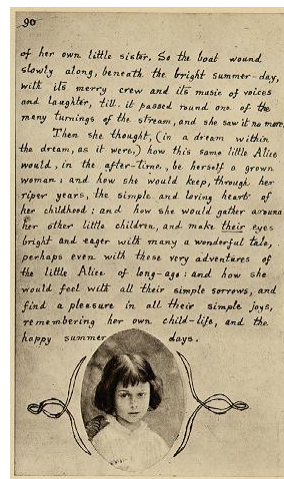 90
of her own little sister. So the boat wound
slowly along, beneath the bright summer-day,
with its merry crew and its music of voices
and laughter, till it passed round one of the
many turnings of the stream, and she saw it no more.
Then she thought, (in a dream within
the dream, as it were,) how this same little Alice
would, in the after-time, be herself a grown
woman: and how she would keep, through her
riper years, the simple and loving heart of
her childhood: and how she would gather around
her other little children, and make their eyes
bright and eager with many a wonderful tale,
perhaps even with these very adventures of
the little Alice of long-ago: and how she
would feel with all their simple sorrows, and
find a pleasure in all their simple joys,
remembering her own child-life, and the
happy summer days.